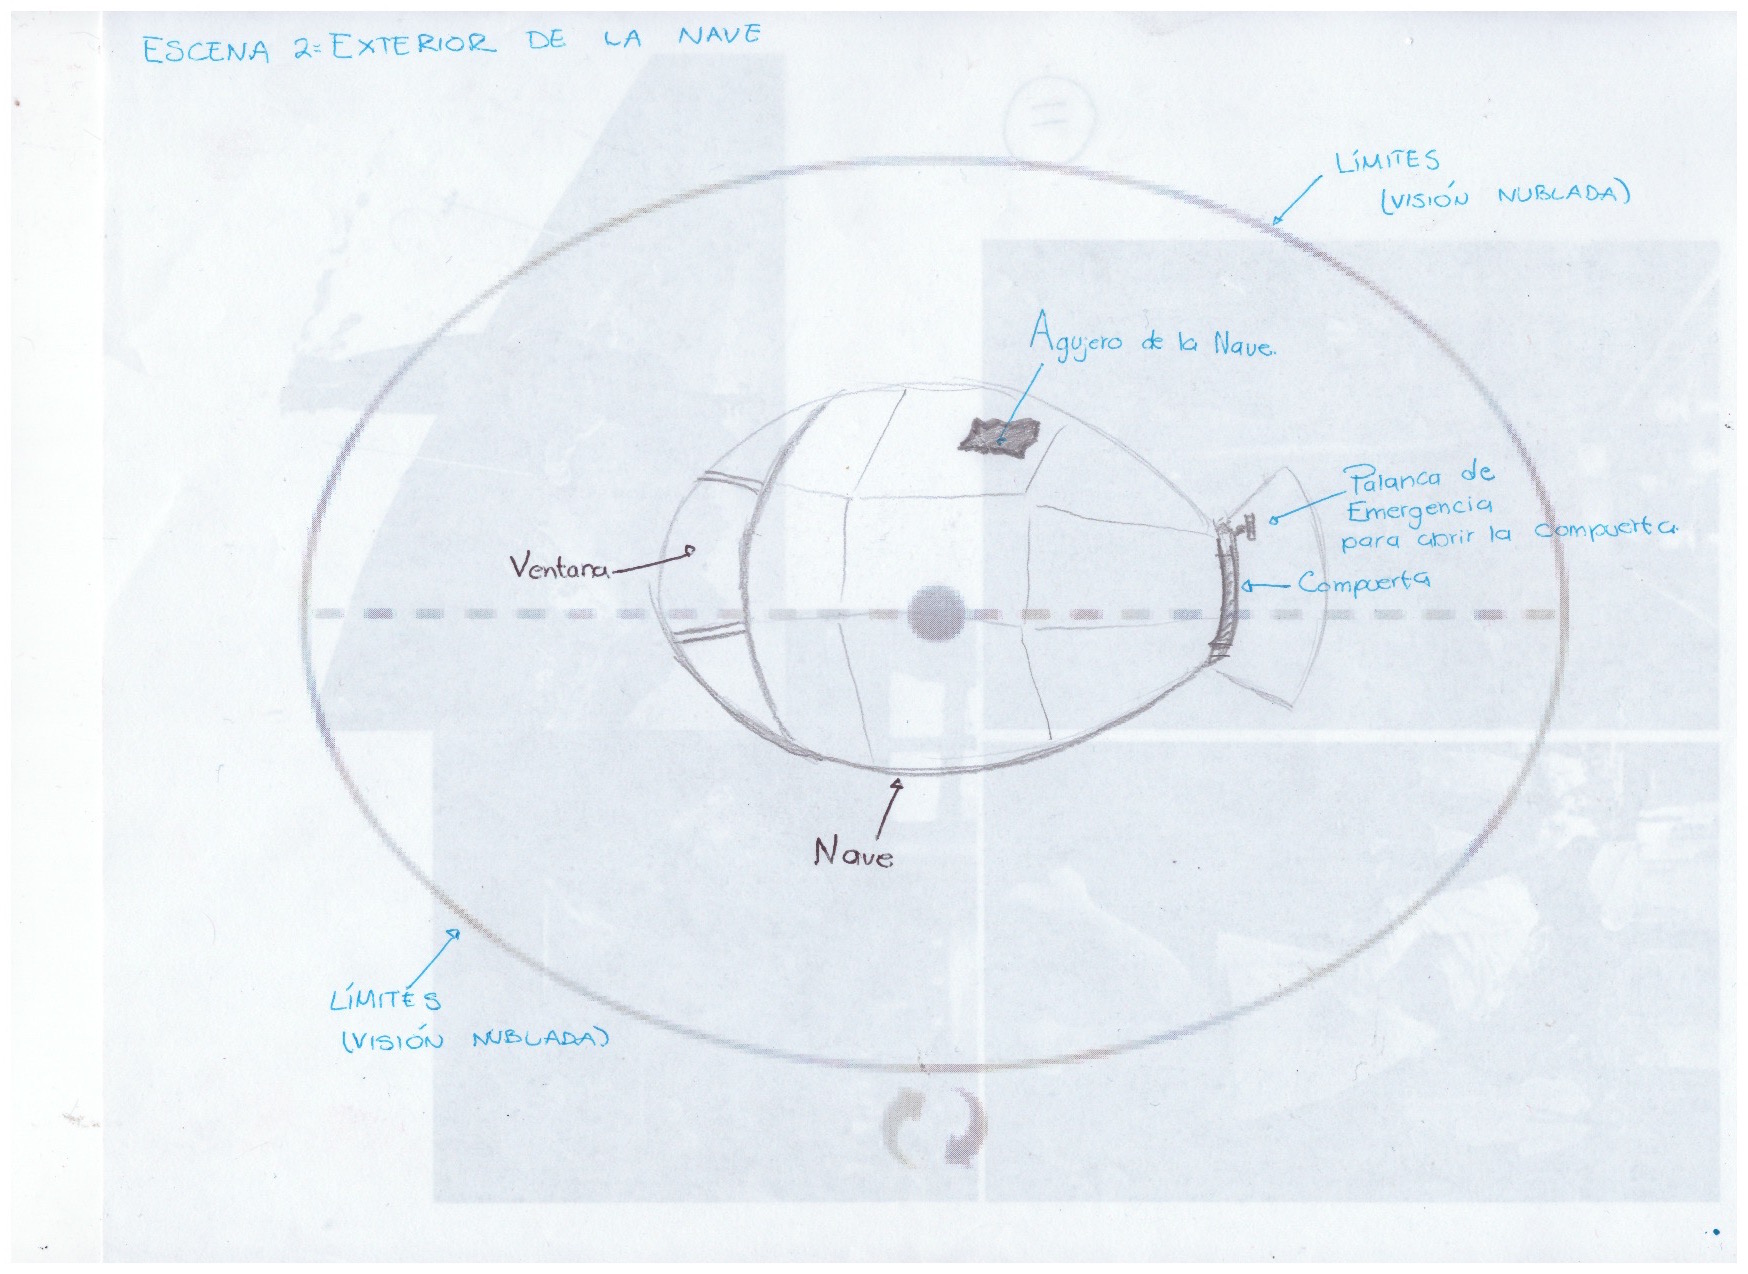 ESCENA 2: EXTERIOR DE LA NAVE
LÍMITES
(VISIÓN NUBLADA)
Agujero de la Nave.
Palanca de
Emergencia
para abrir la compuerta.
Ventana
Compuerta
Nave
LÍMITES
(VISIÓN NUBLADA)